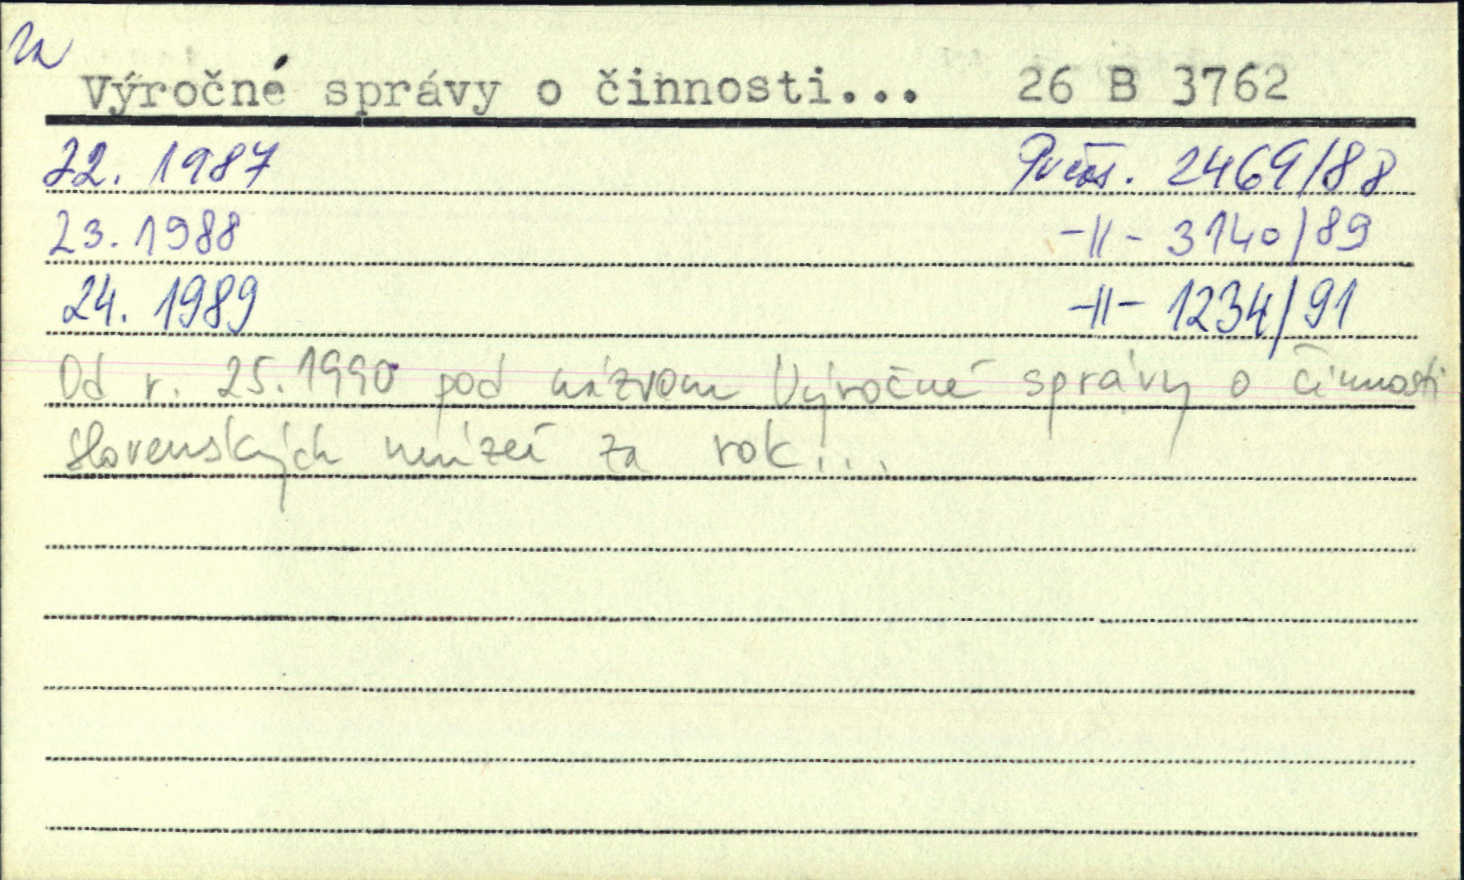 Výročné správy o činnosti... 26 B 3762
22. 1987 2469/88
23. 1988 -||- 3140/89
24. 1989 -||- 1234/91
Od r. 25. 1990 pod názvom Výročné správy o činnosti
slovenských múzeí za rok...